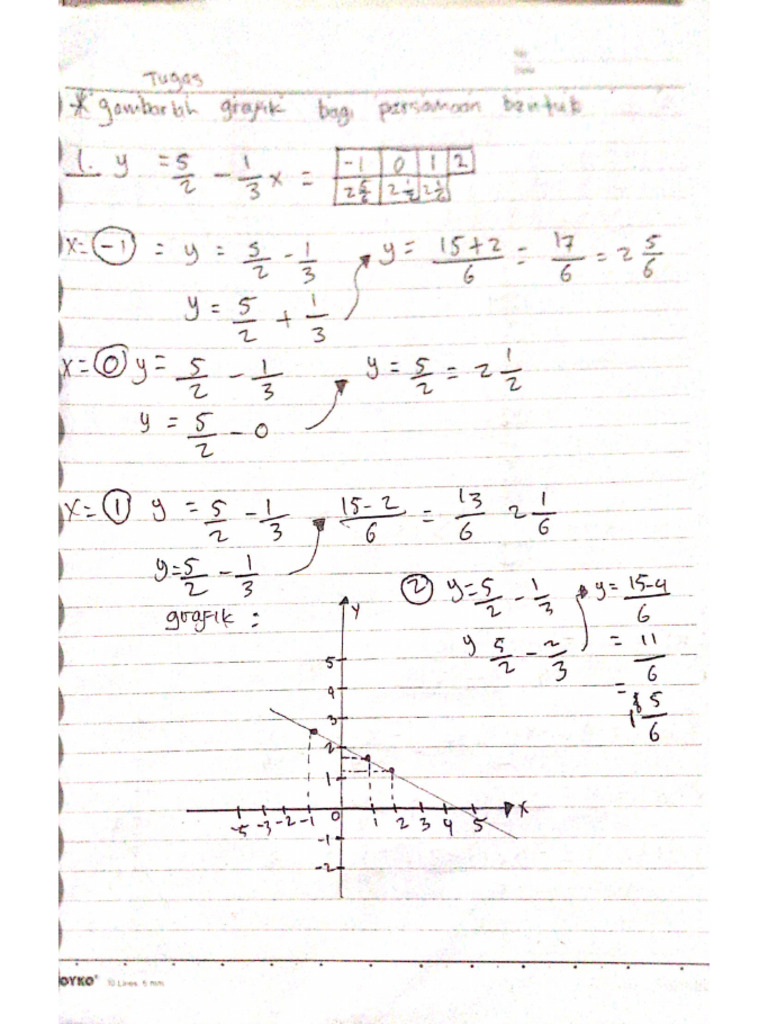 Tugas
* gambarlah grafik bagi persamaan bentuk
1. y = 5/2 - 1/3 x =
-1 0 1 2
2 5/6 2 1/2 2 1/6
x = -1 = y = 5/2 - 1/3 y = 15+2/6 = 17/6 = 2 5/6
y = 5/2 + 1/3
x = 0 y = 5/2 - 1/3 y = 5/2 = 2 1/2
y = 5/2 - 0
x = 1 y = 5/2 - 1/3 15-2/6 = 13/6 2 1/6
y = 5/2 - 1/3
2 y = 5/2 - 1/3 y = 15-4/6
grafik :
y 5/2 - 2/3 = 11/6
= 1 5/6
Y
5
4
3
2
1
-5 -3 -2 -1 0 1 2 3 4 5 X
-1
-2
OYKO 30 Lines 6 mm